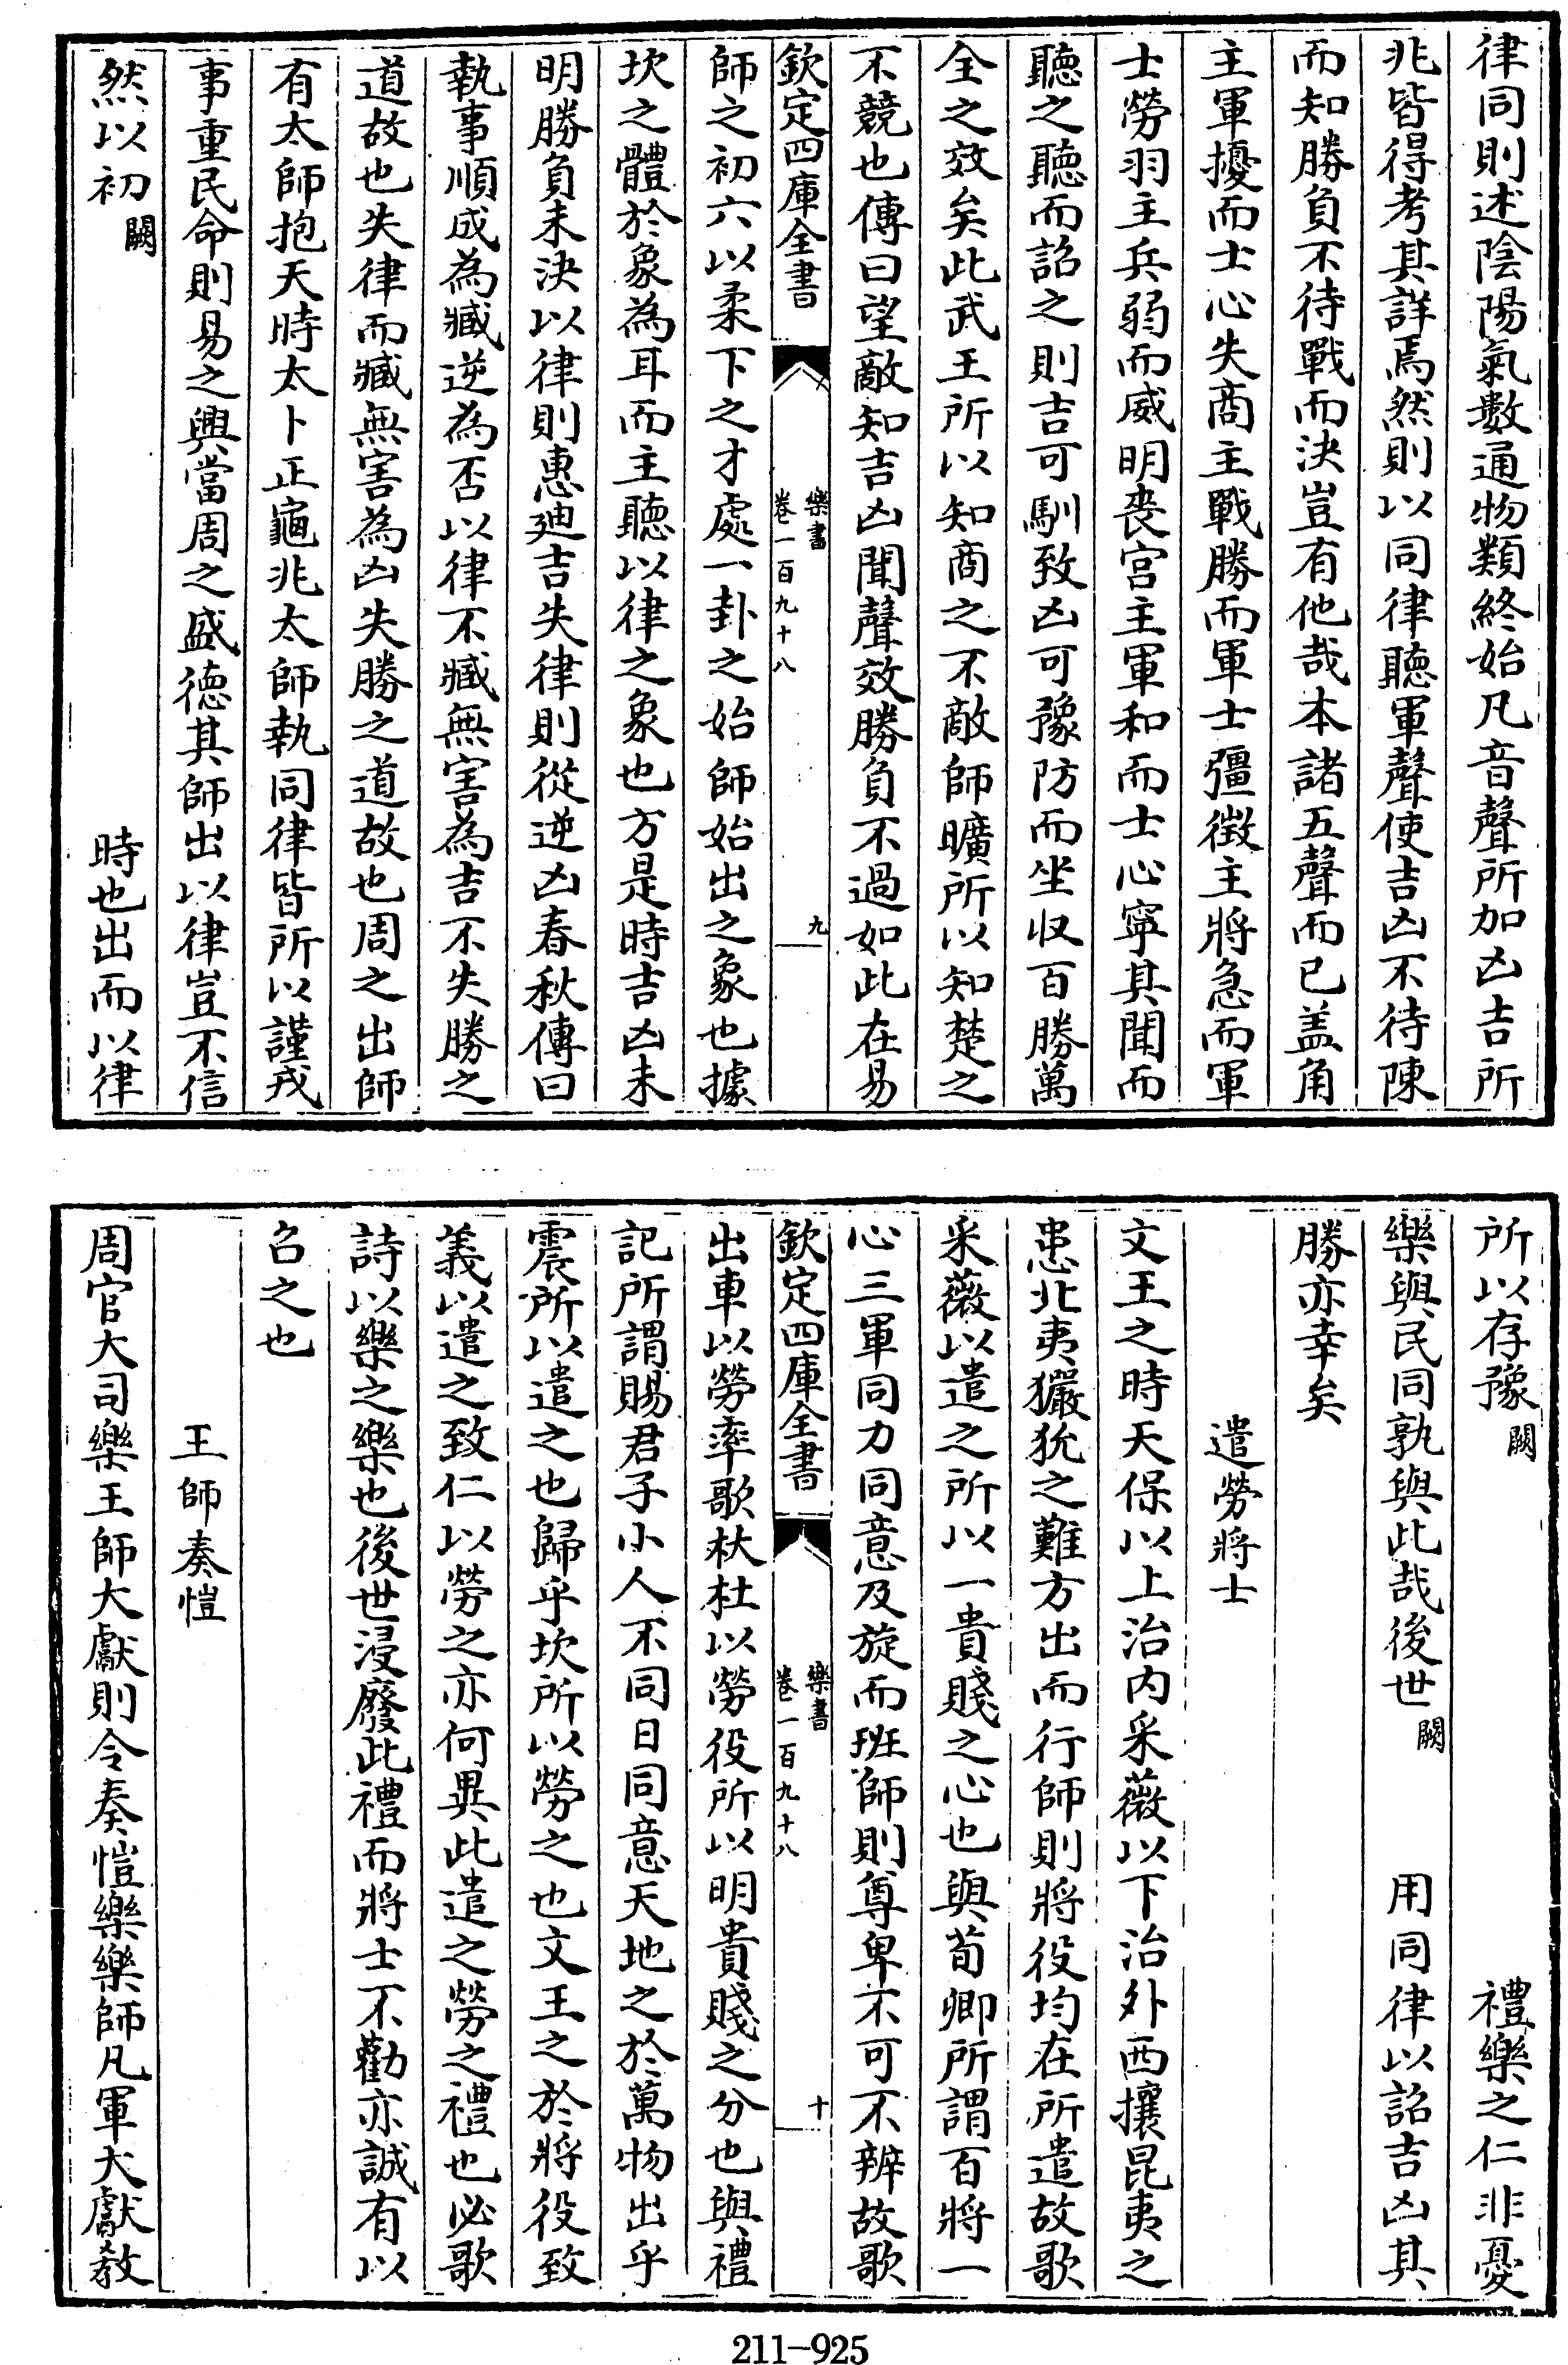 律同則述陰陽氣數通物類終始凡音聲所加凶吉所
兆皆得考其詳焉然則以同律聽軍聲使吉凶不待陳
而知勝負不待戰而決豈有他哉本諸五聲而已盖角
主軍擾而士心失商主戰勝而軍士彊徵主將急而軍
士勞羽主兵弱而威明喪宫主軍和而士心寧其聞而
聽之聽而詔之則吉可馴致凶可豫防而坐収百勝萬
全之效矣此武王所以知商之不敵師曠所以知楚之
不競也傳曰望敵知吉凶聞聲效勝負不過如此在易
欽定四庫全書
樂書
卷一百九十八
九
師之初六以柔下之才處一卦之始師始出之象也據
坎之體於象為耳而主聽以律之象也方是時吉凶未
明勝負未決以律則惠廸吉失律則從逆凶春秋傳曰
執事順成為臧逆為否以律不臧無害為吉不失勝之
道故也失律而臧無害為凶失勝之道故也周之出師
有太師抱天時太卜正龜兆太師執同律皆所以謹戎
事重民命則易之興當周之盛德其師出以律豈不信
然以初闕 時也出而以律
所以存豫闕 禮樂之仁非憂
樂與民同孰與此哉後世闕 用同律以詔吉凶其
勝亦幸矣
遣勞將士
文王之時天保以上治内采薇以下治外西攘昆夷之
患北夷玁狁之難方出而行師則將役均在所遣故歌
采薇以遣之所以一貴賤之心也與荀卿所謂百將一
心三軍同力同意及旋而班師則尊卑不可不辨故歌
欽定四庫全書
樂書
卷一百九十八
十
出車以勞率歌杕杜以勞役所以明貴賤之分也與禮
記所謂賜君子小人不同日同意天地之於萬物出乎
震所以遣之也歸乎坎所以勞之也文王之於將役致
義以遣之致仁以勞之亦何異此遣之勞之禮也必歌
詩以樂之樂也後世浸廢此禮而將士不勸亦誠有以
召之也
王師奏愷
周官大司樂王師大獻則令奏愷樂樂師凡軍大獻教
211-925